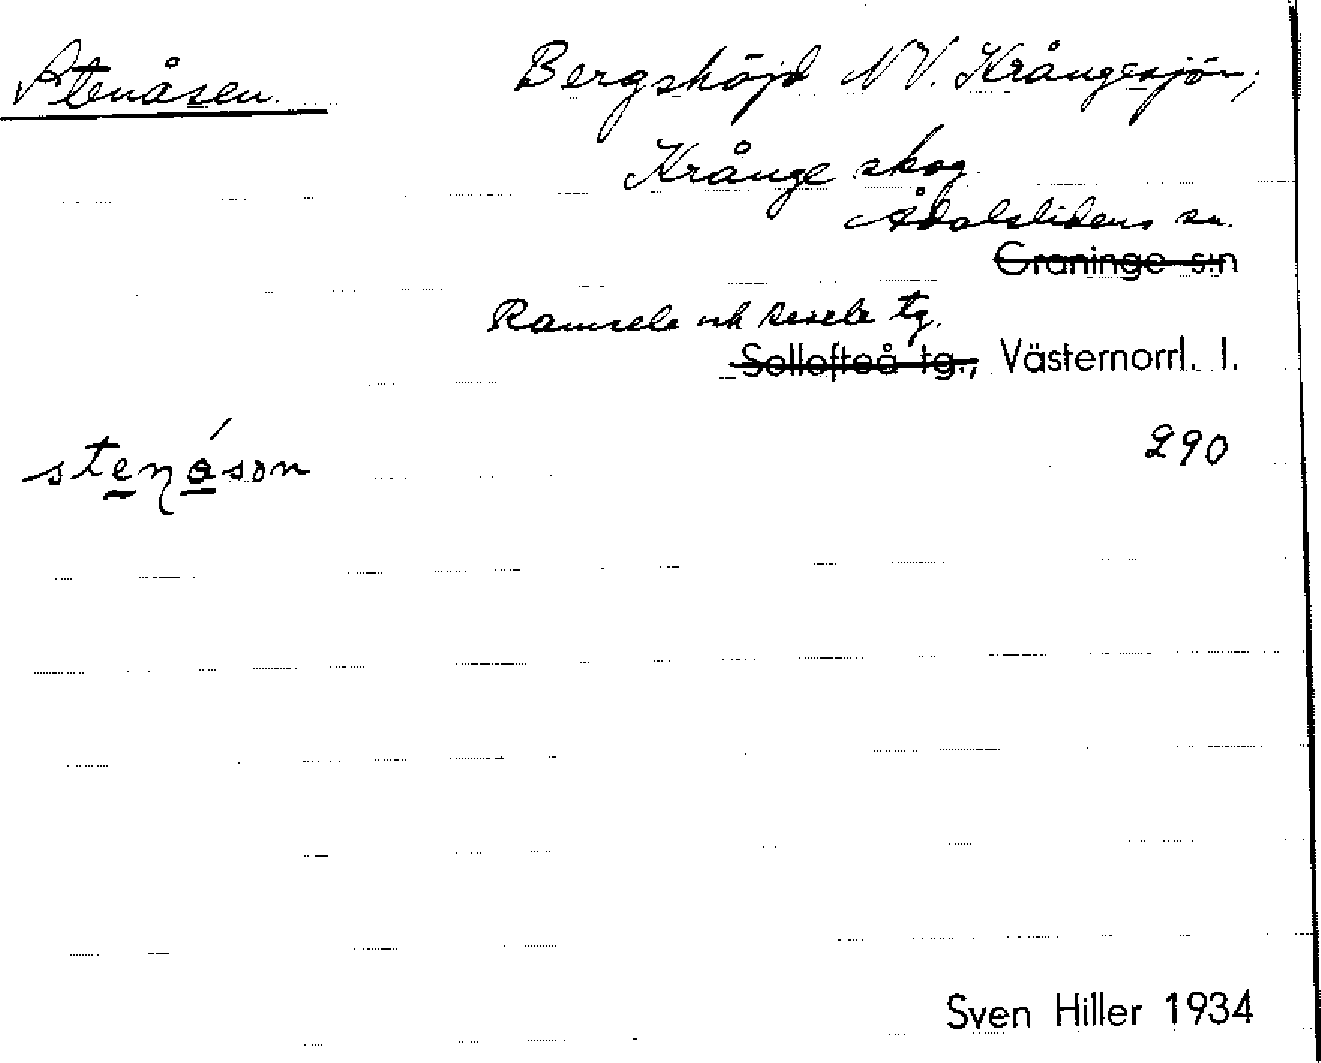 Stenåsen. Bergshöjd NV. Krångesjön,
Krånge skog
Ådalslidens sn.
Graninge s:n
Ramsele och Resele tg.
Sollefteå tg., Västernorrl. l.
stenåsən 290
Sven Hiller 1934